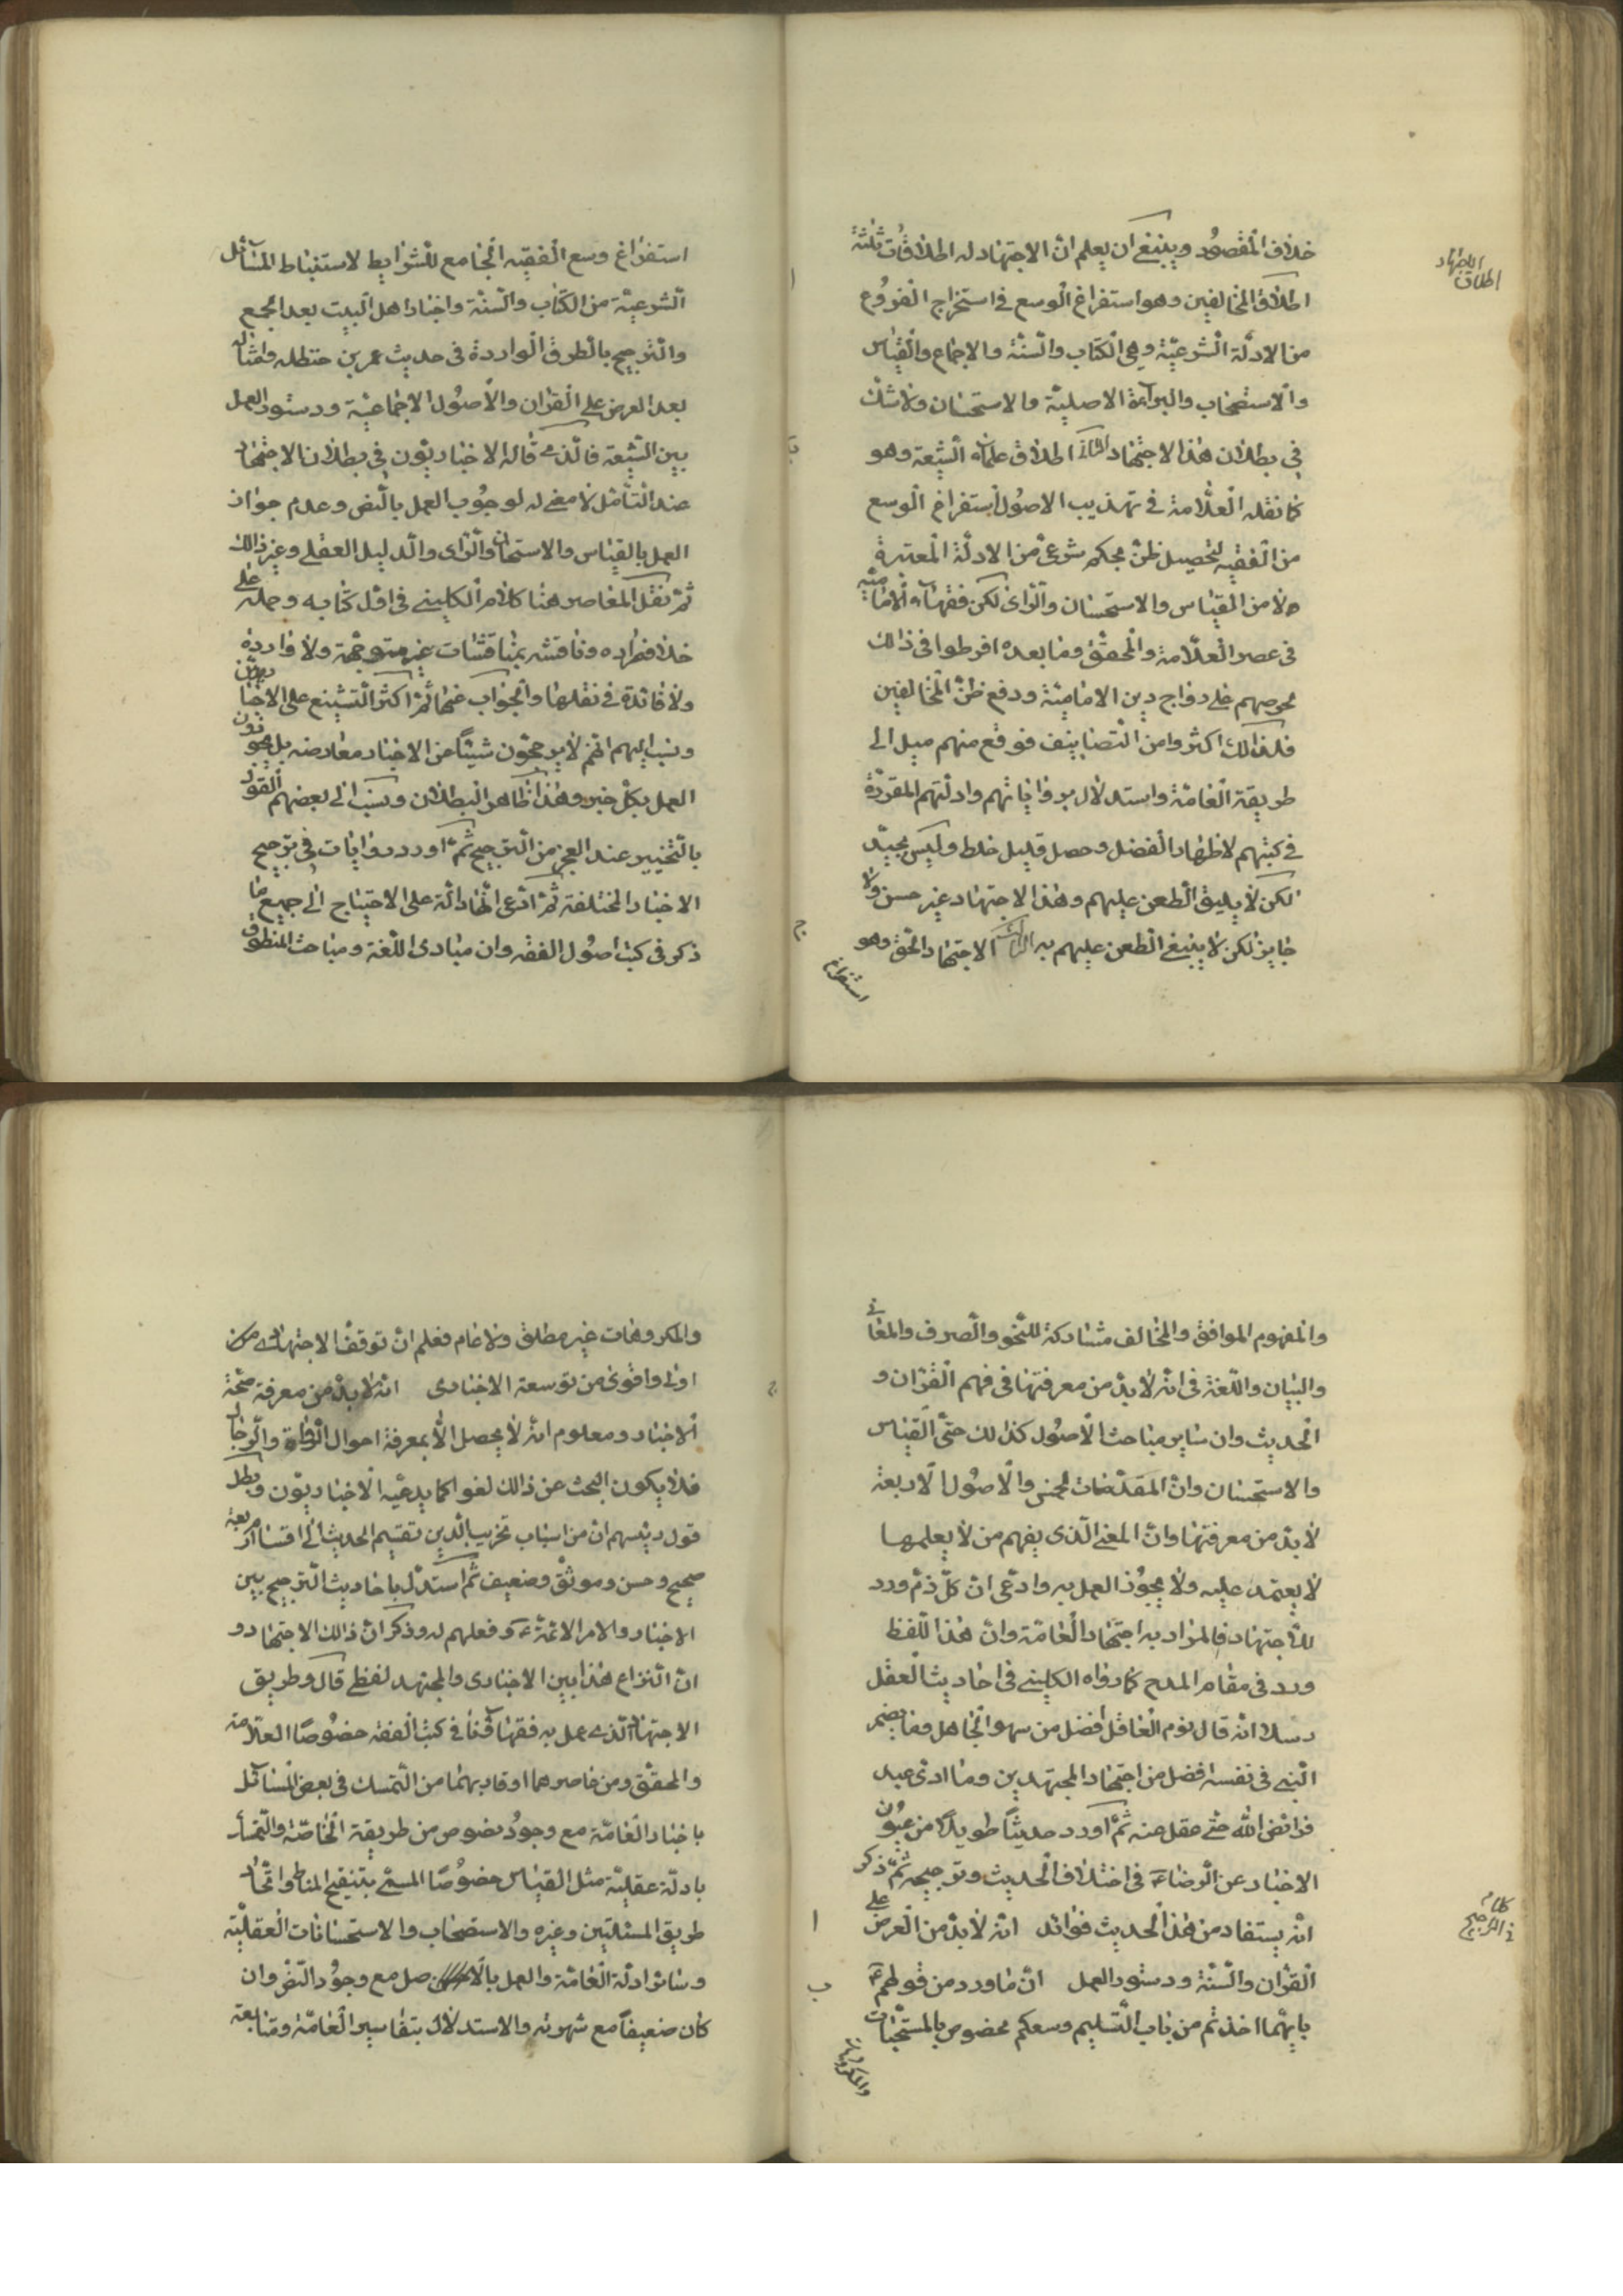 خلاف المقصود وينبغي ان يعلم ان الاجتهاد له اطلاقات ثلثة
اطلاق الاجتهاد
ا
اطلاق المخالفين وهو استفراغ الوسع في استخراج الفروع
من الادلة الشرعية وهي الكتاب والسنة والاجماع والقياس
والاستصحاب والبراءة الاصلية والاستحسان ولا شك
في بطلان هذا الاجتهاد الثاني اطلاق علماء الشيعة وهو
كما نقله العلامة في تهذيب الاصول استفراغ الوسع
من الفقيه لتحصيل ظن بحكم شرعي من الادلة المعتبرة
لا من القياس والاستحسان والراى لكن فقهاء الامامية
في عصر العلامة والمحقق وما بعده افرطوا في ذالك
لحرصهم على رواج دين الامامية ودفع ظن المخالفين
فلذالك اكثروا من التصانيف فوقع منهم ميل الى
طريقة العامة واستدلال برواياتهم وادلتهم المقررة
في كتبهم لاظهار الفضل وحصل قليل خلط وليس بجيد
لكن لا يليق الطعن عليهم وهذا الاجتهاد غير حسن ولا
ج
جايز لكن لا ينبغي الطعن عليهم به الثالث الاجتهاد الحق وهو
استفراغ
استفراغ وسع الفقيه الجامع للشرايط لاستنباط المسائل
الشرعية من الكتاب والسنة واخبار اهل البيت بعد الجمع
والترجيح بالطرق الواردة في حديث عمر بن حنظله وامثاله
بعد العرض على القران والاصول الاجماعية ودستور العمل
بين الشيعة فالذي قاله الاخباريون في بطلان الاجتهاد
عند التأمل لا معنى له لوجوب العمل بالنص وعدم جواز
العمل بالقياس والاستحسان والراى والدليل العقلي وغير ذالك
ثم نقل المعاصر هنا كلام الكليني في اول كتابه وحمله على
خلاف مراده وناقشه بمناقشات غير متوجهة ولا واردة
ولا فائدة في نقلها والجواب عنها ثم اكثر التشنيع على الاخباريين
ونسب اليهم انهم لا يرجحون شيئا من الاخبار معارضه بل يجوزون
العمل بكل خبر وهذا ظاهر البطلان ونسب الى بعضهم القول
بالتخيير عند العجز من الترجيح ثم اورد روايات في ترجيح
الاخبار المختلفة ثم ادعى انها دالة على الاحتياج الى جميع ما
ذكر في كتب اصول الفقه وان مبادى اللغة ومباحث المنطوق
والمفهوم الموافق والمخالف مشاركة للنحو والصرف والمعاني
والبيان واللغة في انه لا بد من معرفتها في فهم القران و
الحديث وان ساير مباحث الاصول كذالك حتى القياس
والاستحسان وان المقدمات الخمس والاصول الاربعة
لا بد من معرفتها وان المعنى الذي يفهم من لا يعلمها
لا يعتمد عليه ولا يجوز العمل به وادعى ان كل ذم ورد
للاجتهاد فالمراد به اجتهاد العامة وان هذا اللفظ
ورد في مقام المدح كما رواه الكليني في احاديث العقل
رسلا انه قال نوم العاقل افضل من سهر الجاهل وما يضمر
النبي في نفسه افضل من اجتهاد المجتهدين وما ادى عبد
فرائض الله حتى عقل عنه ثم اورد حديثا طويلا من عيون
الاخبار عن الرضا ع في اختلاف الحديث وترجيحه ثم ذكر
كلام في الترجيح
ا
انه يستفاد من هذا الحديث فوائد انه لا بد من العرض على
ب
القران والسنة ودستور العمل ان ما ورد من قولهم ع
بايهما اخذتم من باب التسليم وسعكم مخصوص بالمستحبات
والمكروهات
والمكروهات غير مطلق ولا عام فعلم ان توقف الاجتهادي
اولى واقوى من توسعة الاخبارى انه لا بد من معرفة صحة
الاخبار ومعلوم انه لا يحصل الا بمعرفة احوال الرواة والرجال
فلا يكون البحث عن ذالك لغوا كما يدعيه الاخباريون وبطل
قول رئيسهم ان من اسباب تخريب الدين تقسيم الحديث الى اقسام اربعة
صحيح وحسن وموثق وضعيف ثم استدل باحاديث الترجيح بين
الاخبار والامر الائمة ع وفعلهم له وذكر ان ذالك الاجتهاد و
ان النزاع هذا بين الاخبارى والمجتهد لفظي قال وطريق
الاجتهاد الذي عمل به فقهائنا في كتب الفقه خصوصا العلامة
والمحقق ومن عاصرهما او قاربهما من التمسك في بعض المسائل
باخبار العامة مع وجود نصوص من طريقة الخاصة والتمسك
بادلة عقلية مثل القياس خصوصا المسمى بتنقيح المناط واتحاد
طريق المسئلتين وغيره والاستصحاب والاستحسانات العقلية
وسائر ادلة العامة والعمل بالاصل مع وجود النص وان
كان ضعيفا مع شهرته والاستدلال بتفاسير العامة ومتابعة